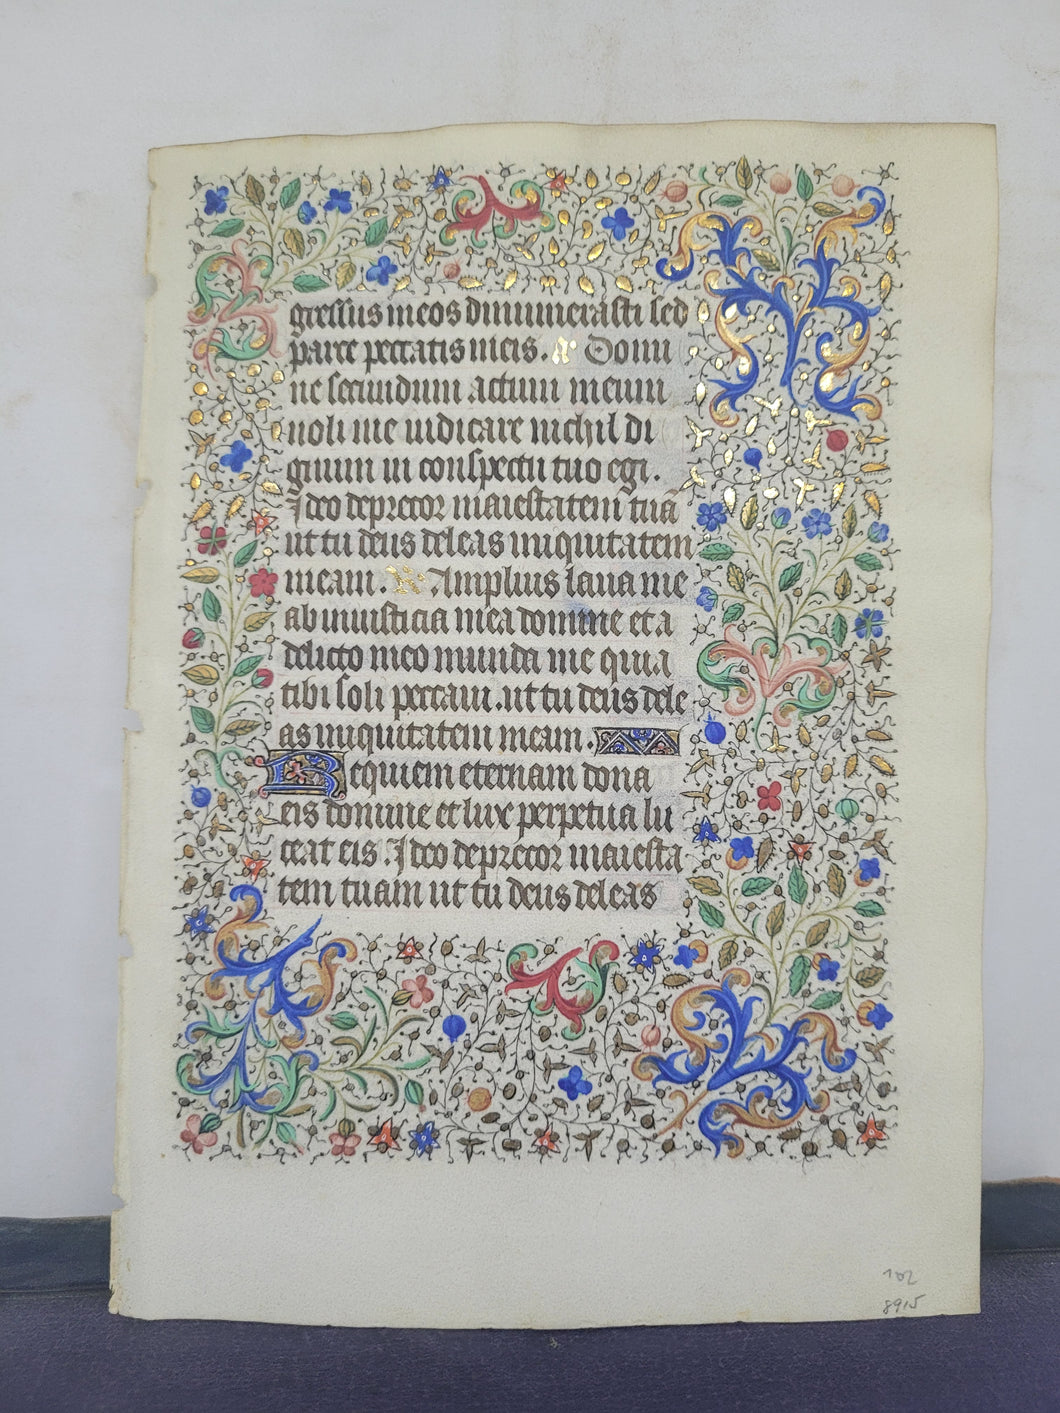 gressus meos dinumerasti sed
parce peccatis meis. V Domi
ne secundum actum meum
noli me iudicare nichil di
gnum in conspectu tuo egi.
Ideo deprecor maiestatem tuã
ut tu deus deleas iniquitatem
meam. V Amplius laua me
ab iniusticia mea domine et a
delicto meo munda me quia
tibi soli peccaui. ut tu deus dele
as iniquitatem meam.
Requiem eternam dona
eis domine et lux perpetua lu
ceat eis. Ideo deprecor maiesta
tem tuam ut tu deus deleas
102
8915